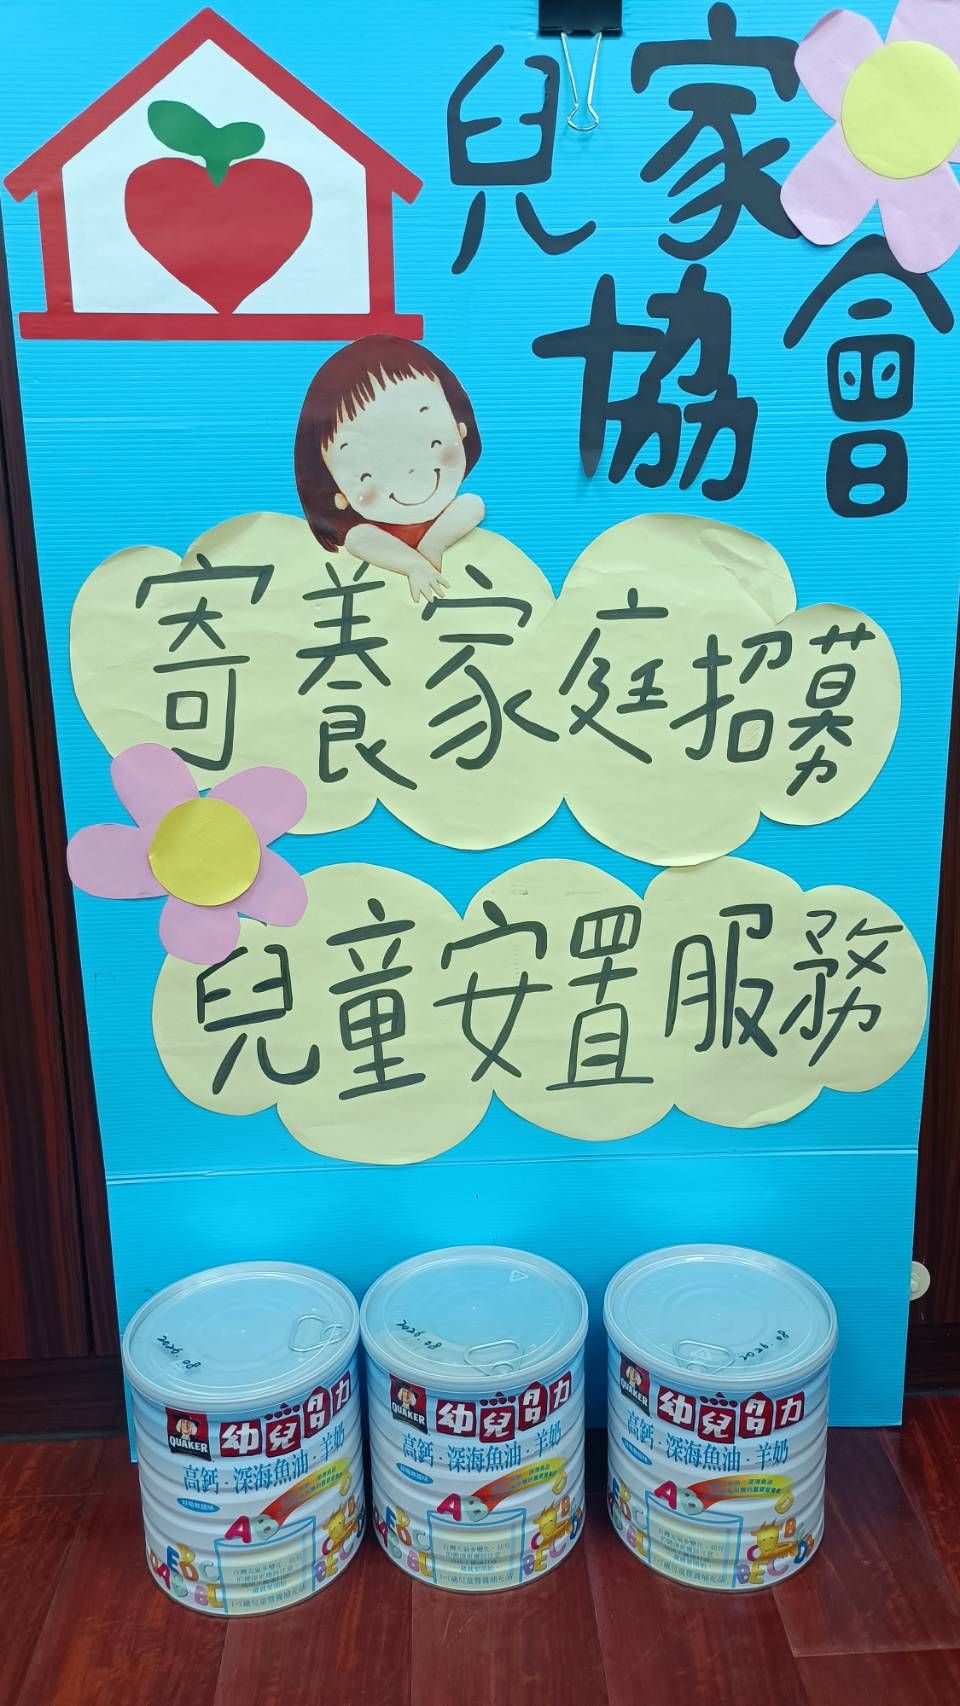 兒家
協會
寄養家庭招募
兒童安置服務
2026.08
QUAKER
幼兒多多力
高鈣·深海魚油·羊奶
2026.08
QUAKER
幼兒多多力
高鈣·深海魚油·羊奶
2026.08
QUAKER
幼兒多多力
高鈣·深海魚油·羊奶